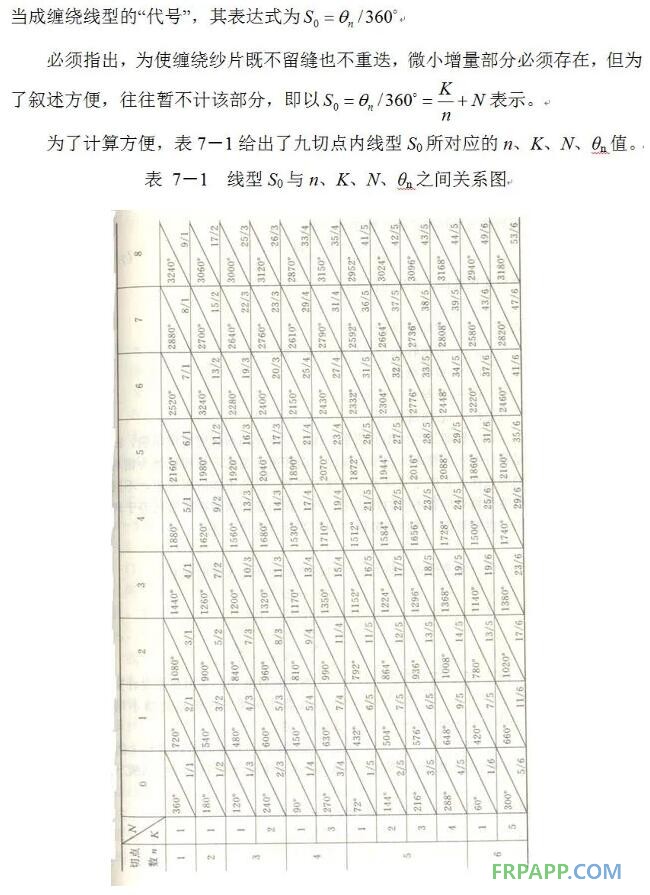 当成缠绕线型的“代号”，其表达式为S₀ = θₙ /360°
必须指出，为使缠绕纱片既不留缝也不重迭，微小增量部分必须存在，但为
了叙述方便，往往暂不计该部分，即以S₀ = θₙ /360° = K/n + N 表示。
为了计算方便，表 7－1 给出了九切点内线型 S₀ 所对应的 n、K、N、θₙ 值。
表 7－1 线型 S₀ 与 n、K、N、θₙ 之间关系图
切点数 n N K 0 1 2 3 4 5 6 7 8
1 1 360° 1/1 720° 2/1 1080° 3/1 1440° 4/1 1880° 5/1 2160° 6/1 2520° 7/1 2880° 8/1 3240° 9/1
2 1 180° 1/2 540° 3/2 900° 5/2 1260° 7/2 1620° 9/2 1980° 11/2 3240° 13/2 2700° 15/2 3060° 17/2
3 1 120° 1/3 480° 4/3 840° 7/3 1200° 10/3 1560° 13/3 1920° 16/3 2280° 19/3 2640° 22/3 3000° 25/3
2 240° 2/3 600° 5/3 960° 8/3 1320° 11/3 1680° 14/3 2040° 17/3 2400° 20/3 2760° 23/3 3120° 26/3
4 1 90° 1/4 450° 5/4 810° 9/4 1170° 13/4 1530° 17/4 1890° 21/4 2150° 25/4 2610° 29/4 2870° 33/4
3 270° 3/4 630° 7/4 990° 11/4 1350° 15/4 1710° 19/4 2070° 23/4 2430° 27/4 2790° 31/4 3150° 35/4
5 1 72° 1/5 432° 6/5 792° 11/5 1152° 16/5 1512° 21/5 1872° 26/5 2332° 31/5 2592° 36/5 2952° 41/5
2 144° 2/5 504° 7/5 864° 12/5 1224° 17/5 1584° 22/5 1944° 27/5 2304° 32/5 2664° 37/5 3024° 42/5
3 216° 3/5 576° 6/5 936° 13/5 1296° 18/5 1656° 23/5 2016° 28/5 2776° 33/5 2736° 38/5 3096° 43/5
4 288° 4/5 648° 9/5 1008° 14/5 1368° 19/5 1728° 24/5 2088° 29/5 2448° 34/5 2808° 39/5 3168° 44/5
6 1 60° 1/6 420° 7/5 780° 13/5 1140° 19/6 1500° 25/6 1860° 31/6 2220° 37/6 2580° 43/6 2940° 49/6
5 300° 5/6 660° 11/6 1020° 17/6 1380° 23/6 1740° 29/6 2100° 35/6 2460° 41/6 2820° 47/6 3180° 53/6
FRPAPP.COM